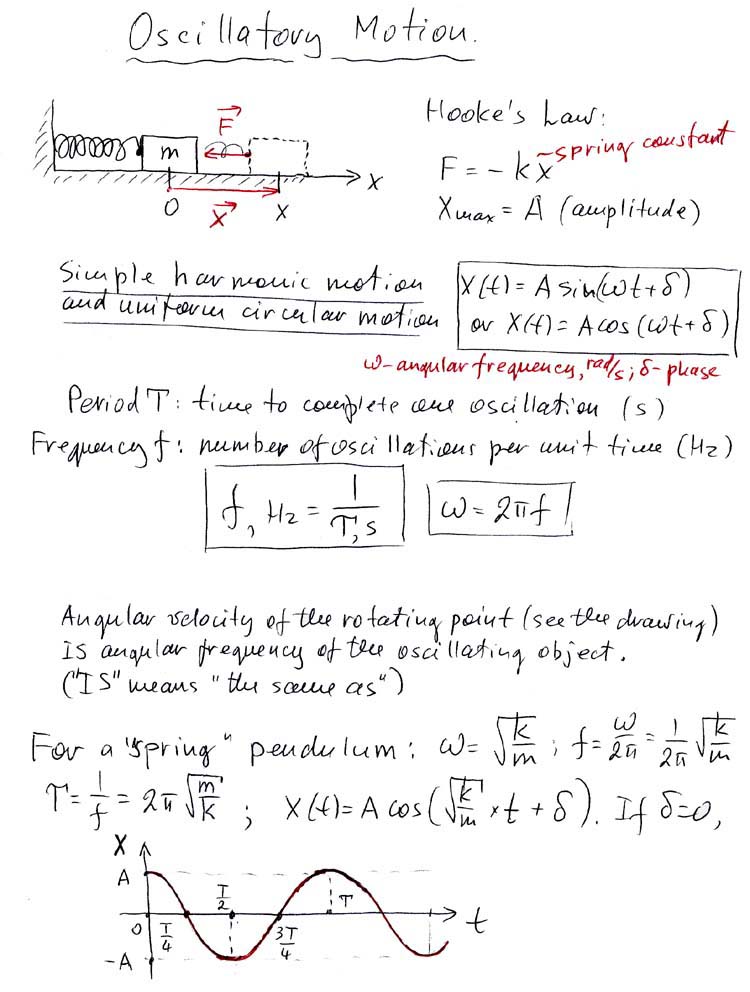 Oscillatory Motion.
F
m
0
X
X
X
Hooke's Law:
F = - kx
-spring constant
Xmax = A (amplitude)
Simple harmonic motion
and uniform circular motion
X(t) = A sin(ωt + δ)
or X(t) = A cos(ωt + δ)
ω-angular frequency, rad/s; δ-phase
Period T: time to complete one oscillation (s)
Frequency f: number of oscillations per unit time (Hz)
f, Hz = 1/T, s
ω = 2πf
Angular velocity of the rotating point (see the drawing)
IS angular frequency of the oscillating object.
("IS" means "the same as")
For a "spring" pendulum: ω = √(k/m) ; f = ω/2π = 1/2π √(k/m)
T = 1/f = 2π √(m/k) ; X(t) = A cos(√(k/m) × t + δ). If δ=0,
X
A
0
-A
T/4
T/2
3T/4
T
t